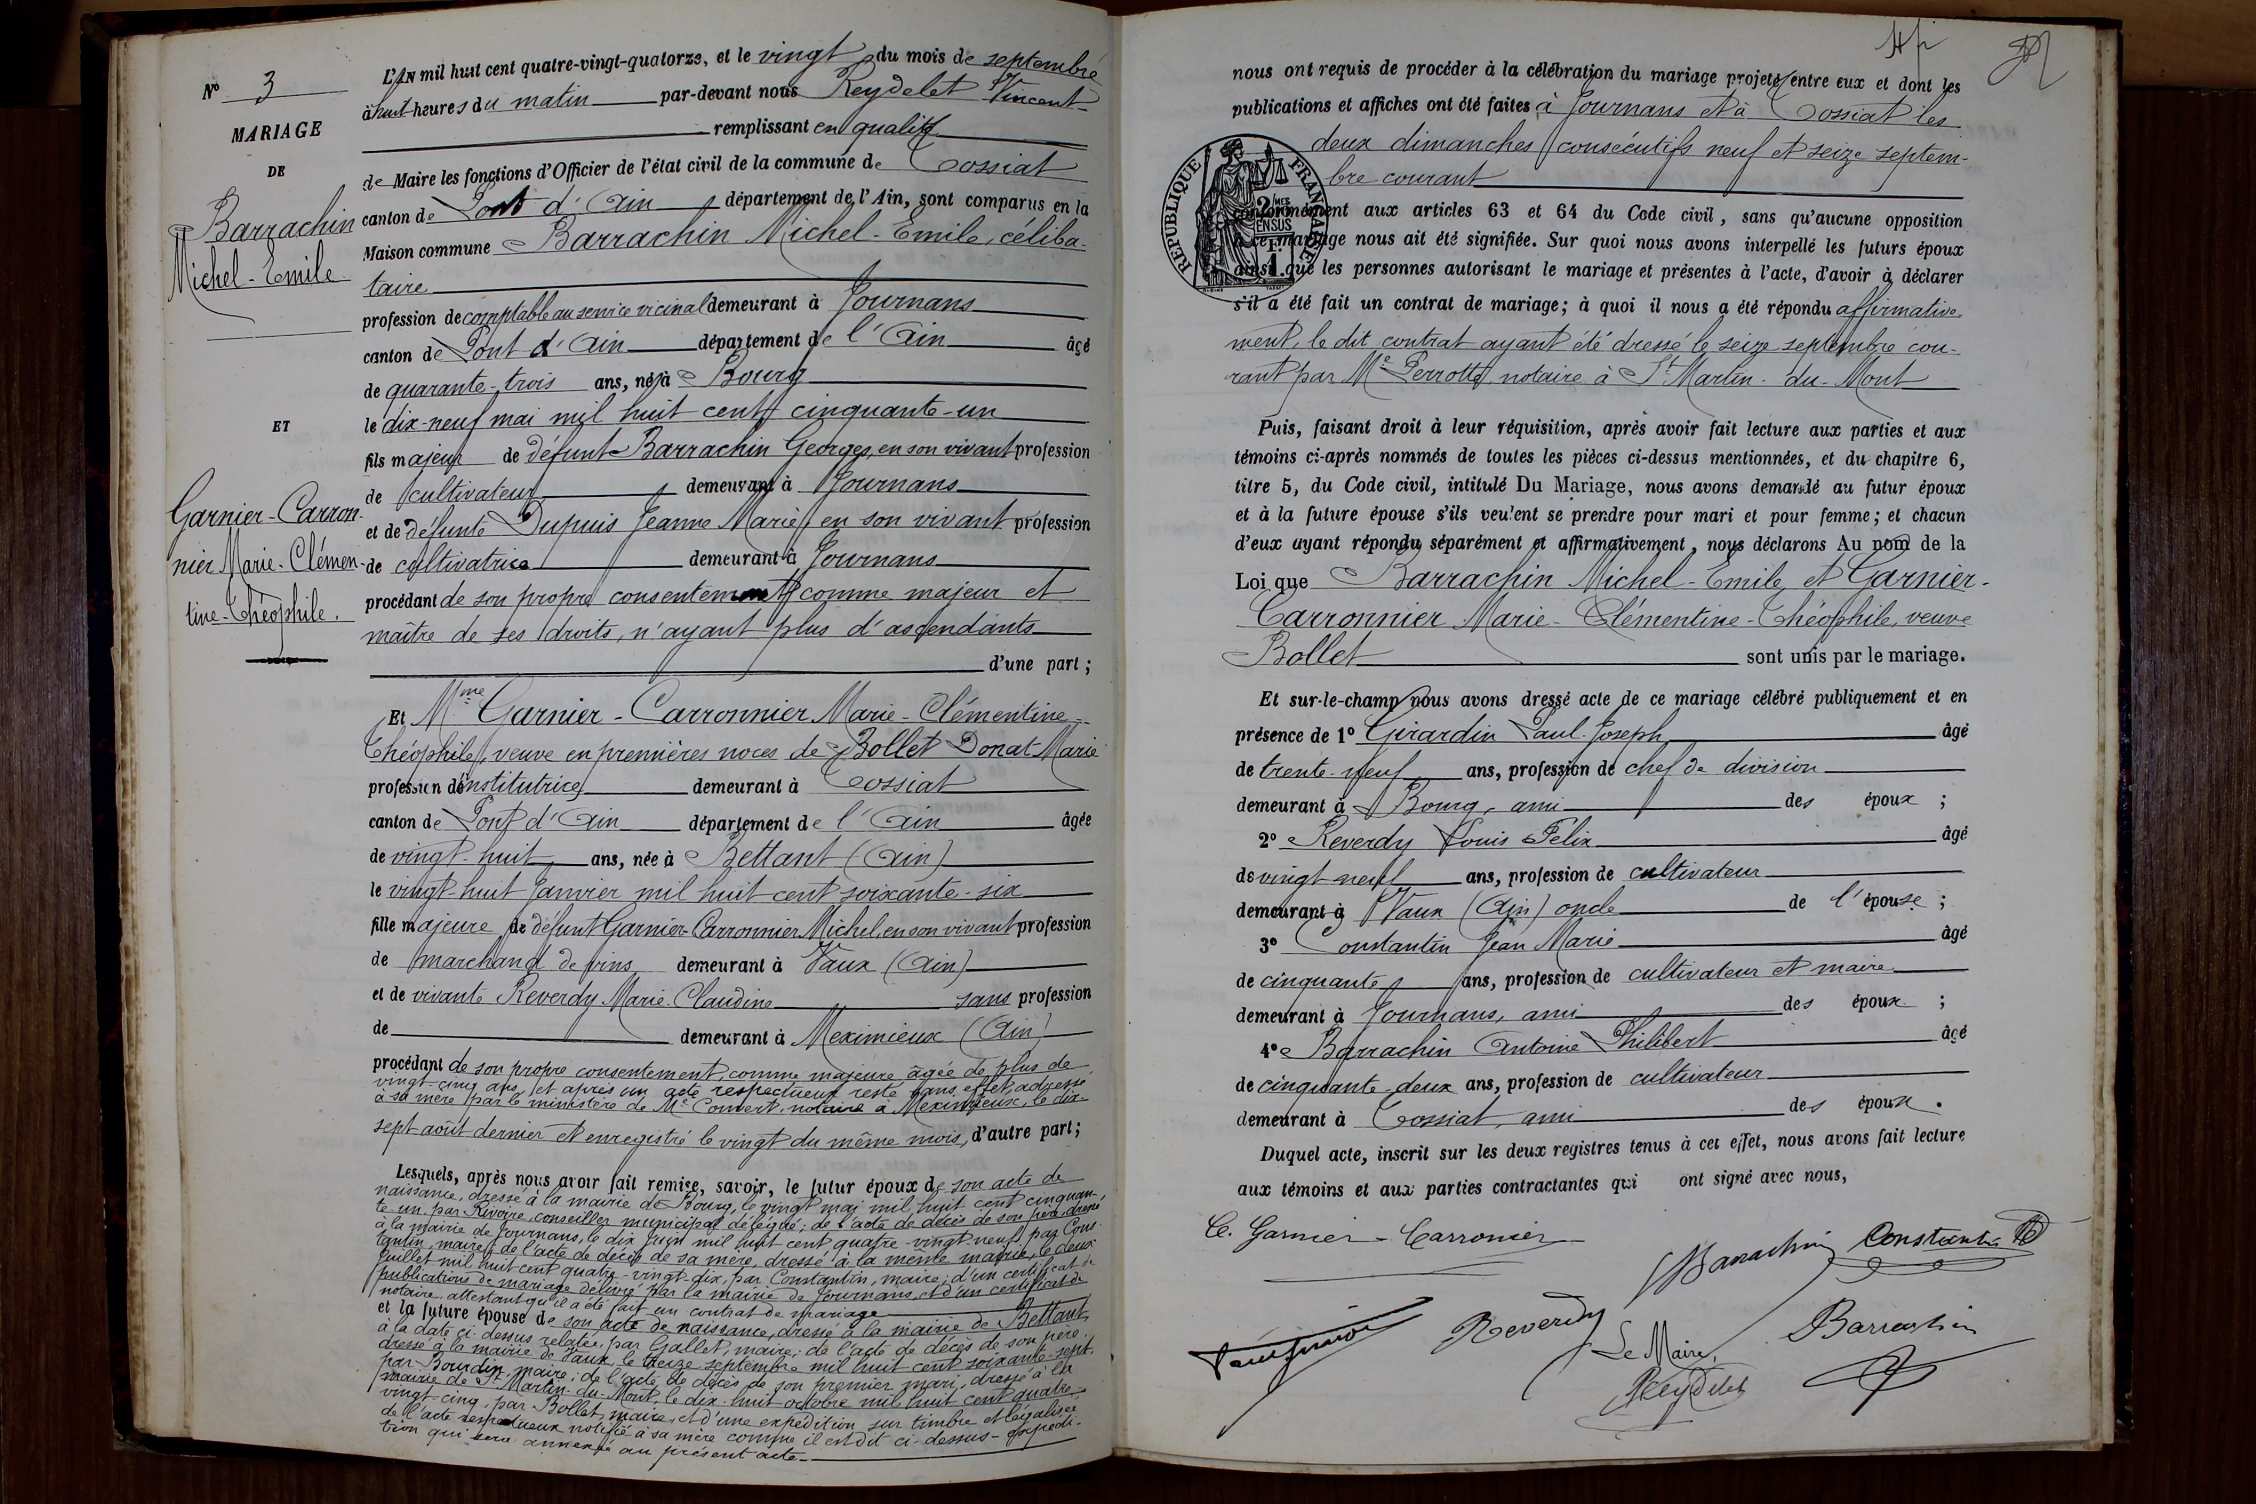 Nº 3
MARIAGE
DE
Barrachin
Michel-Emile
ET
Garnier-Carron-
nier Marie-Clémen-
tine-Théophile.
L'AN mil huit cent quatre-vingt-quatorze, et le vingt du mois de septembre
à huit heures du matin par-devant nous Reydelet Vincent
remplissant en qualité
de Maire les fonctions d'Officier de l'état civil de la commune de Tossiat
canton de Pont d'Ain département de l'Ain, sont comparus en la
Maison commune Barrachin Michel-Emile, céliba-
taire
profession de comptable au service vicinal demeurant à Journans
canton de Pont d'Ain département de l'Ain âgé
de quarante-trois ans, né à Bourg
le dix-neuf mai mil huit cent cinquante-un
fils majeur de défunt Barrachin Georges, en son vivant profession
de cultivateur demeurant à Journans
et de défunte Dupuis Jeanne Marie, en son vivant profession
de cultivatrice demeurant à Journans
procédant de son propre consentement comme majeur et
maître de ses droits, n'ayant plus d'ascendants
d'une part ;
Et Mme Garnier-Carronnier Marie-Clémentine-
Théophile, veuve en premières noces de Bollet Donat-Marie
profession d'institutrice demeurant à Tossiat
canton de Pont d'Ain département de l'Ain âgée
de vingt-huit ans, née à Bettant (Ain)
le vingt-huit janvier mil huit cent soixante-six
fille majeure de défunt Garnier-Carronnier Michel, en son vivant profession
de marchand de vins demeurant à Vaux (Ain)
et de vivante Reverdy Marie-Claudine sans profession
de demeurant à Meximieux (Ain)
procédant de son propre consentement, comme majeure âgée de plus de
vingt-cinq ans, et après un acte respectueux resté sans effet, adressé
à sa mère par le ministère de Me Convert, notaire à Meximieux, le dix-
sept août dernier et enregistré le vingt du même mois, d'autre part ;
Lesquels, après nous avoir fait remise, savoir, le futur époux de son acte de
naissance, dressé à la mairie de Bourg, le vingt mai mil huit cent cinquan-
te-un par Rivoire, conseiller municipal délégué ; de l'acte de décès de son père, dressé
à la mairie de Journans, le dix juin mil huit cent quatre-vingt-neuf par Cons-
tantin, maire ; de l'acte de décès de sa mère, dressé à la même mairie, le deux
juillet mil huit cent quatre-vingt-dix, par Constantin, maire ; d'un certificat de
publications de mariage délivré par la mairie de Journans, et d'un certificat de
notaire attestant qu'il a été fait un contrat de mariage
et la future épouse de son acte de naissance, dressé à la mairie de Bettant,
à la date ci-dessus relatée, par Gallet, maire ; de l'acte de décès de son père
dressé à la mairie de Vaux, le treize septembre mil huit cent soixante-sept
par Bourdin, maire ; de l'acte de décès de son premier mari, dressé à la
mairie de St Martin-du-Mont, le dix-huit octobre mil huit cent quatre-
vingt-cinq, par Bollet, maire, et d'une expédition sur timbre et légalisée
de l'acte respectueux notifié à sa mère comme il est dit ci-dessus - expédi-
tion qui sera annexée au présent acte
nous ont requis de procéder à la célébration du mariage projeté entre eux et dont les
publications et affiches ont été faites à Journans et à Tossiat les
deux dimanches consécutifs neuf et seize septem-
bre courant
REPUBLIQUE FRANÇAISE
conformément aux articles 63 et 64 du Code civil, sans qu'aucune opposition
à ce mariage nous ait été signifiée. Sur quoi nous avons interpellé les futurs époux
ainsi que les personnes autorisant le mariage et présentes à l'acte, d'avoir à déclarer
s'il a été fait un contrat de mariage ; à quoi il nous a été répondu affirmative-
ment, le dit contrat ayant été dressé le seize septembre cou-
rant par Me Perrotte, notaire à St Martin-du-Mont
Puis, faisant droit à leur réquisition, après avoir fait lecture aux parties et aux
témoins ci-après nommés de toutes les pièces ci-dessus mentionnées, et du chapitre 6,
titre 5, du Code civil, intitulé Du Mariage, nous avons demandé au futur époux
et à la future épouse s'ils veulent se prendre pour mari et pour femme ; et chacun
d'eux ayant répondu séparément et affirmativement, nous déclarons Au nom de la
Loi que Barrachin Michel-Emile et Garnier-
Carronnier Marie-Clémentine-Théophile, veuve
Bollet sont unis par le mariage.
Et sur-le-champ nous avons dressé acte de ce mariage célébré publiquement et en
présence de 1º Girardin Paul-Joseph âgé
de trente-neuf ans, profession de chef de division
demeurant à Bourg, ami des époux ;
2º Reverdy Louis Félix âgé
de vingt-neuf ans, profession de cultivateur
demeurant à Vaux (Ain) oncle de l'épouse ;
3º Constantin Jean Marie âgé
de cinquante ans, profession de cultivateur et maire
demeurant à Journans, ami des époux ;
4º Barrachin Antoine Philibert âgé
de cinquante-deux ans, profession de cultivateur
demeurant à Tossiat, ami des époux.
Duquel acte, inscrit sur les deux registres tenus à cet effet, nous avons fait lecture
aux témoins et aux parties contractantes qui ont signé avec nous,
C. Garnier-Carronier
Barrachin Constantin
Reverdy
Barrachin
Le Maire,
Reydelet